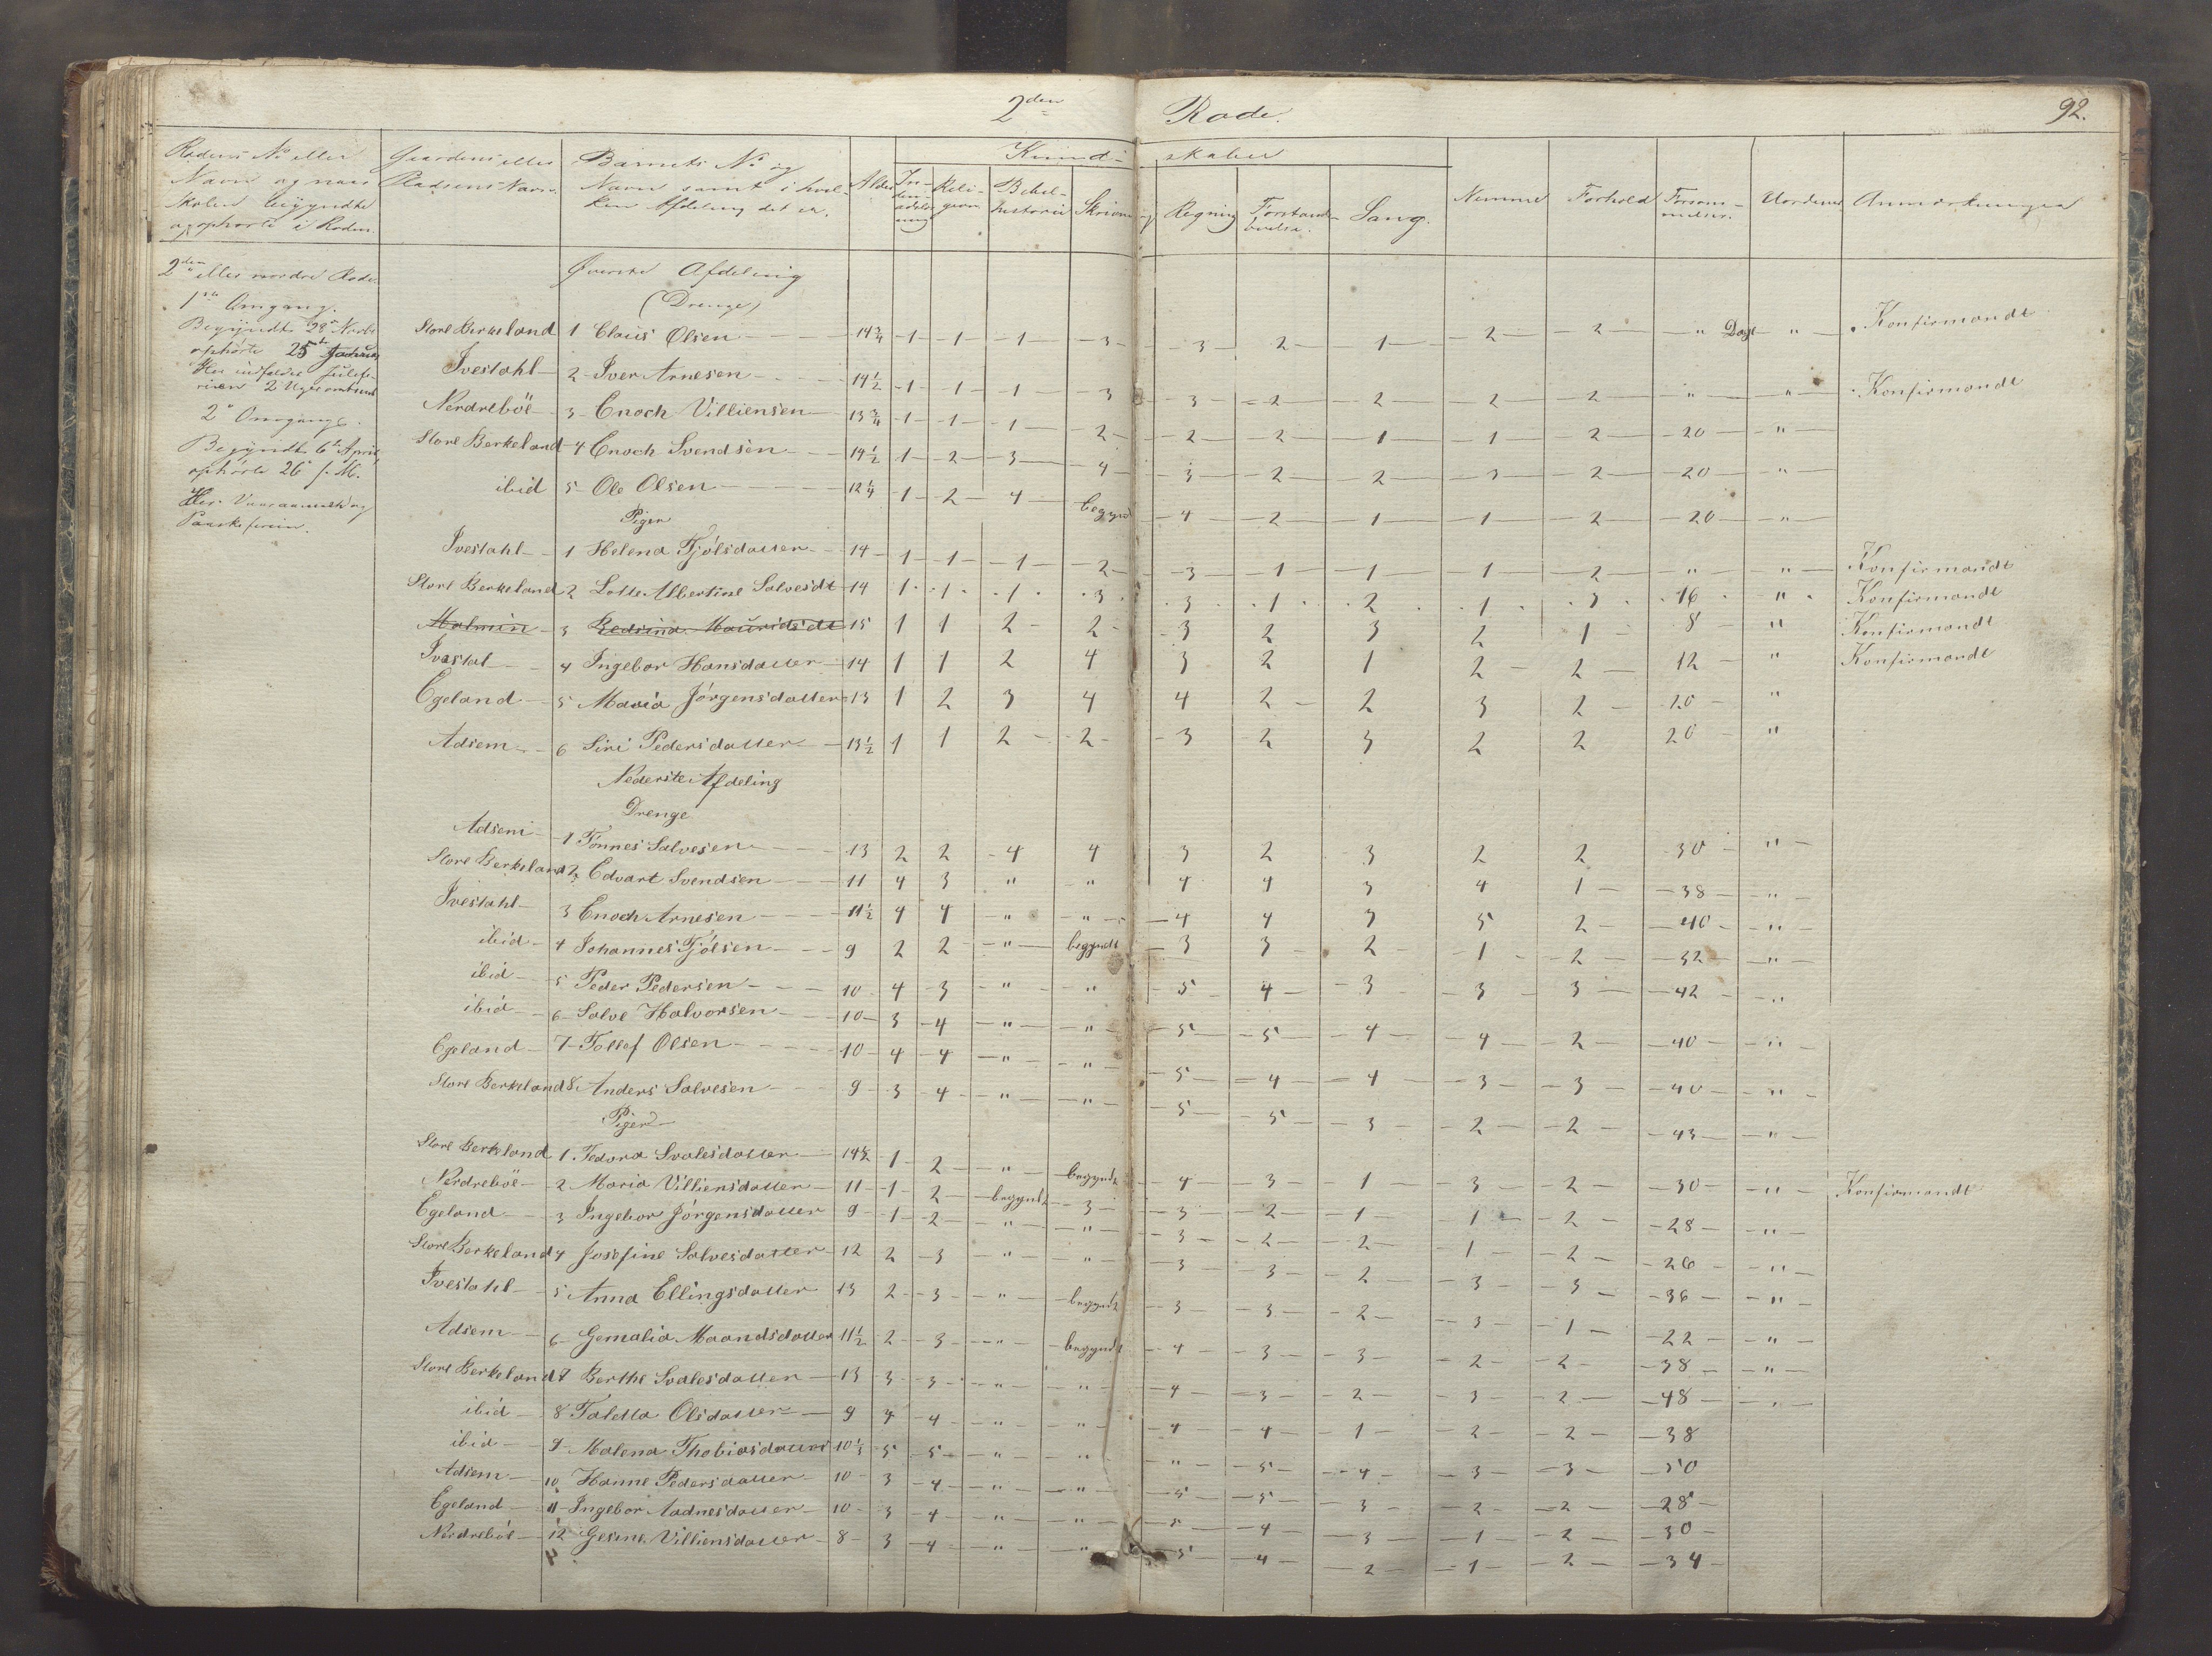 2den Rode. 92.
Kundskaber
Rodens No eller Navn og naar Skolen begyndte og ophørte i Roden.
Gaardens eller Pladsens Navn.
Barnets No og Navn samt i hvilken Afdeling det er.
Alder
Religion
Bibelhistorie
Skrivning
Regning
Sang.
Nemme
Forhold
Forsømmelser.
Anmærkninger
2den eller nordre Rode.
1ste Omgang.
Begyndte 28
ophørte 25
2 Omgang.
Begyndte 6te April
ophørte 26
Øverste Afdeling
(Drenge)
Store Berkeland 1 Claus Olsen 14 3/4 1 1 1 3 3 2 1 2 2 " Dage " Konfirmandt
Ivestahl 2 Iver Arnesen 14 1/2 1 1 1 3 3 2 2 2 2 " " Konfirmandt
Nerdreböe 3 Enoch Villiensen 13 3/4 1 1 1 2 2 2 1 1 2 20 "
Store Berkeland 4 Enoch Svendsen 14 1/2 1 2 3 4 3 2 2 3 2 20 "
ibid 5 Ole Olsen 12 1/4 1 2 4 begynd 4 2 1 1 2 20 "
Piger
Ivestahl 1 Helena Fjölsdatter 14 1 1 1 2 3 1 1 1 2 " " Konfirmandt
Store Berkeland 2 Lotte Albertine Salvesdt 14 1 1 1 3 3 1 2 1 3 16 " Konfirmandt
Malmin 3 Mauridsdt 15 1 1 2 2 3 2 3 2 1 8 " Konfirmandt
Ivestal 4 Ingebor Hansdatter 14 1 1 2 4 3 2 1 2 2 12 " Konfirmandt
Egeland 5 Maria Jörgensdatter 13 1 2 3 4 4 2 2 3 2 20 "
Adsem 6 Siri Pedersdatter 13 1/2 1 1 2 2 3 2 3 2 2 20 "
Nederste Afdeling
Drenge
Adsem 1 Tönnes Salvesen 13 2 2 4 4 3 2 3 2 2 30 "
Store Berkeland 2 Edvart Svendsen 11 4 3 " " 4 4 3 4 1 38 "
Ivestahl 3 Enoch Arnesen 11 1/2 4 4 " " 4 4 3 5 2 40 "
ibid 4 Johannes Fjölsen 9 2 2 " begyndt 3 3 2 1 2 32 "
ibid 5 Peder Pedersen 10 4 3 " " 5 4 3 3 3 42 "
ibid 6 Salve Halvorsen 10 3 4 " " 5 5 4 4 2 40 "
Egeland 7 Tollef Olsen 10 4 4 " " 5 4 4 3 3 40 "
Store Berkeland 8 Anders Salvesen 9 3 4 " " 5 5 3 2 2 43 "
Piger
Store Berkeland 1 Tedora Svalesdatter 14 1/2 1 2 " begyndt 4 3 1 3 2 30 " Konfirmandt
Nerdreböe 2 Maria Villiensdatter 11 1 2 begyndt 3 3 2 1 1 2 28 "
Egeland 3 Ingebor Jörgensdatter 9 1 2 " " 3 2 2 1 2 26 "
Store Berkeland 4 Josefine Salvesdatter 12 2 3 " " 3 3 2 3 3 36 "
Ivestahl 5 Anna Ellingsdatter 13 2 3 " begyndt 3 3 2 3 1 22 "
Adsem 6 Gemalia Maandsdatter 11 1/2 2 3 " begyndt 4 3 3 2 2 38 "
Store Berkeland 7 Berthe Svalesdatter 13 3 3 " " 4 3 2 3 2 48 "
ibid 8 Taletta Olsdatter 9 4 4 " " 4 4 1 2 2 38
ibid 9 Malena Thobiasdatter 10 1/2 5 5 " " " 5 4 3 3 50
Adsem 10 Hanne Pedersdatter 10 3 4 " " 5 5 3 2 2 28
Egeland 11 Ingebor Aadnesdatter 10 3 4 " " 5 4 3 1 2 30
Nerdreböe 12 Gesine Villiensdatter 8 3 4 " " 5 4 2 1 2 34